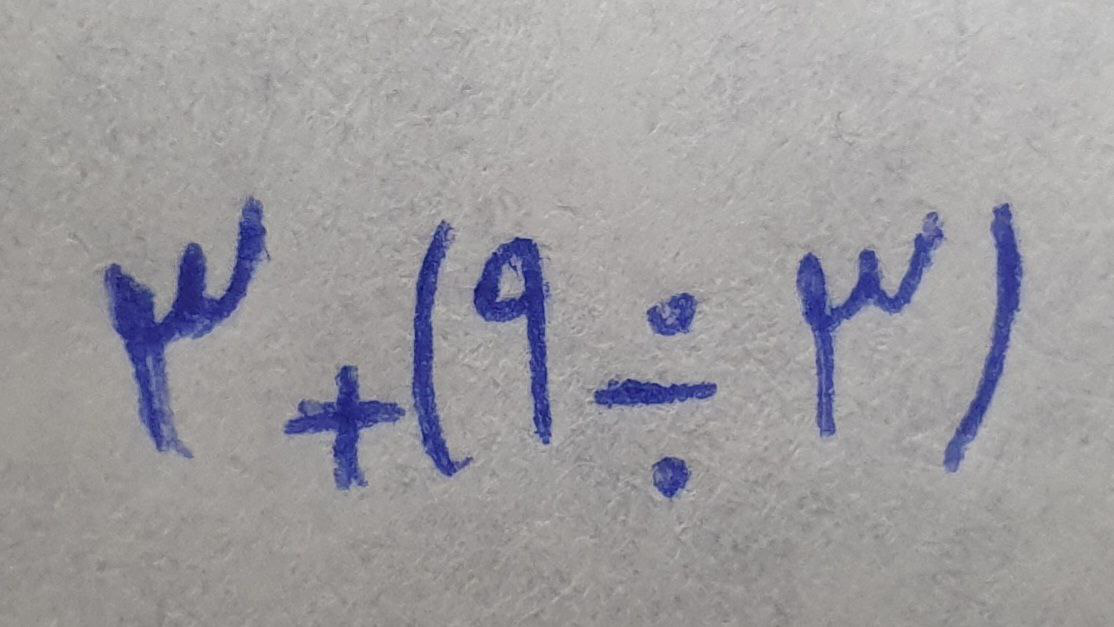 ۳+(۹÷۳)